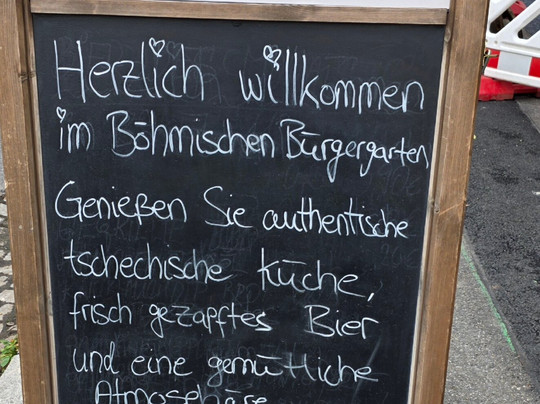 Herzlich willkommen
im Böhmischen Bürgergarten
Genießen Sie authentische
tschechische Küche,
frisch gezapftes Bier
und eine gemütliche
Atmosphäre